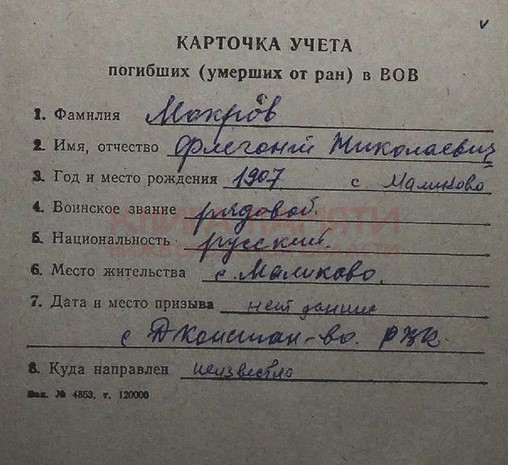 КАРТОЧКА УЧЕТА
погибших (умерших от ран) в ВОВ
1. Фамилия Мохров
2. Имя, отчество Флегонт Николаевич
3. Год и место рождения 1907 с. Маликово
4. Воинское звание рядовой.
5. Национальность русский.
6. Место жительства с. Маликово.
7. Дата и место призыва нет данние
с Дконстан-во. РВК.
8. Куда направлен неизвестно
Зак. № 4853, т. 120000
КНИГА ПАМЯТИ
НИЖЕГОРОДСКОЙ ОБЛАСТИ